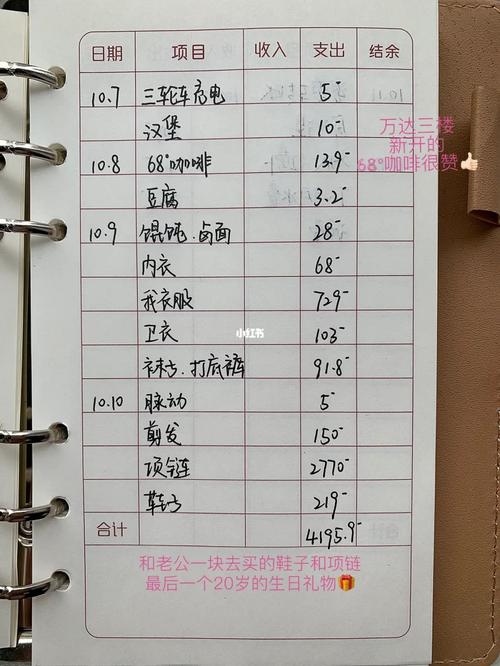 日期 项目 收入 支出 结余
10.7 三轮车充电 5-
汉堡 10-
万达三楼
新开的
68°咖啡很赞👍🏻
10.8 68°咖啡 13.9-
豆腐 3.2-
10.9 馄饨.卤面 28-
内衣 68-
我衣服 729-
小红书
卫衣 103-
袜子.打底裤 91.8-
10.10 脉动 5-
剪发 150-
项链 2770-
鞋子 219-
合计 4195.9-
和老公一块去买的鞋子和项链
最后一个20岁的生日礼物🎁